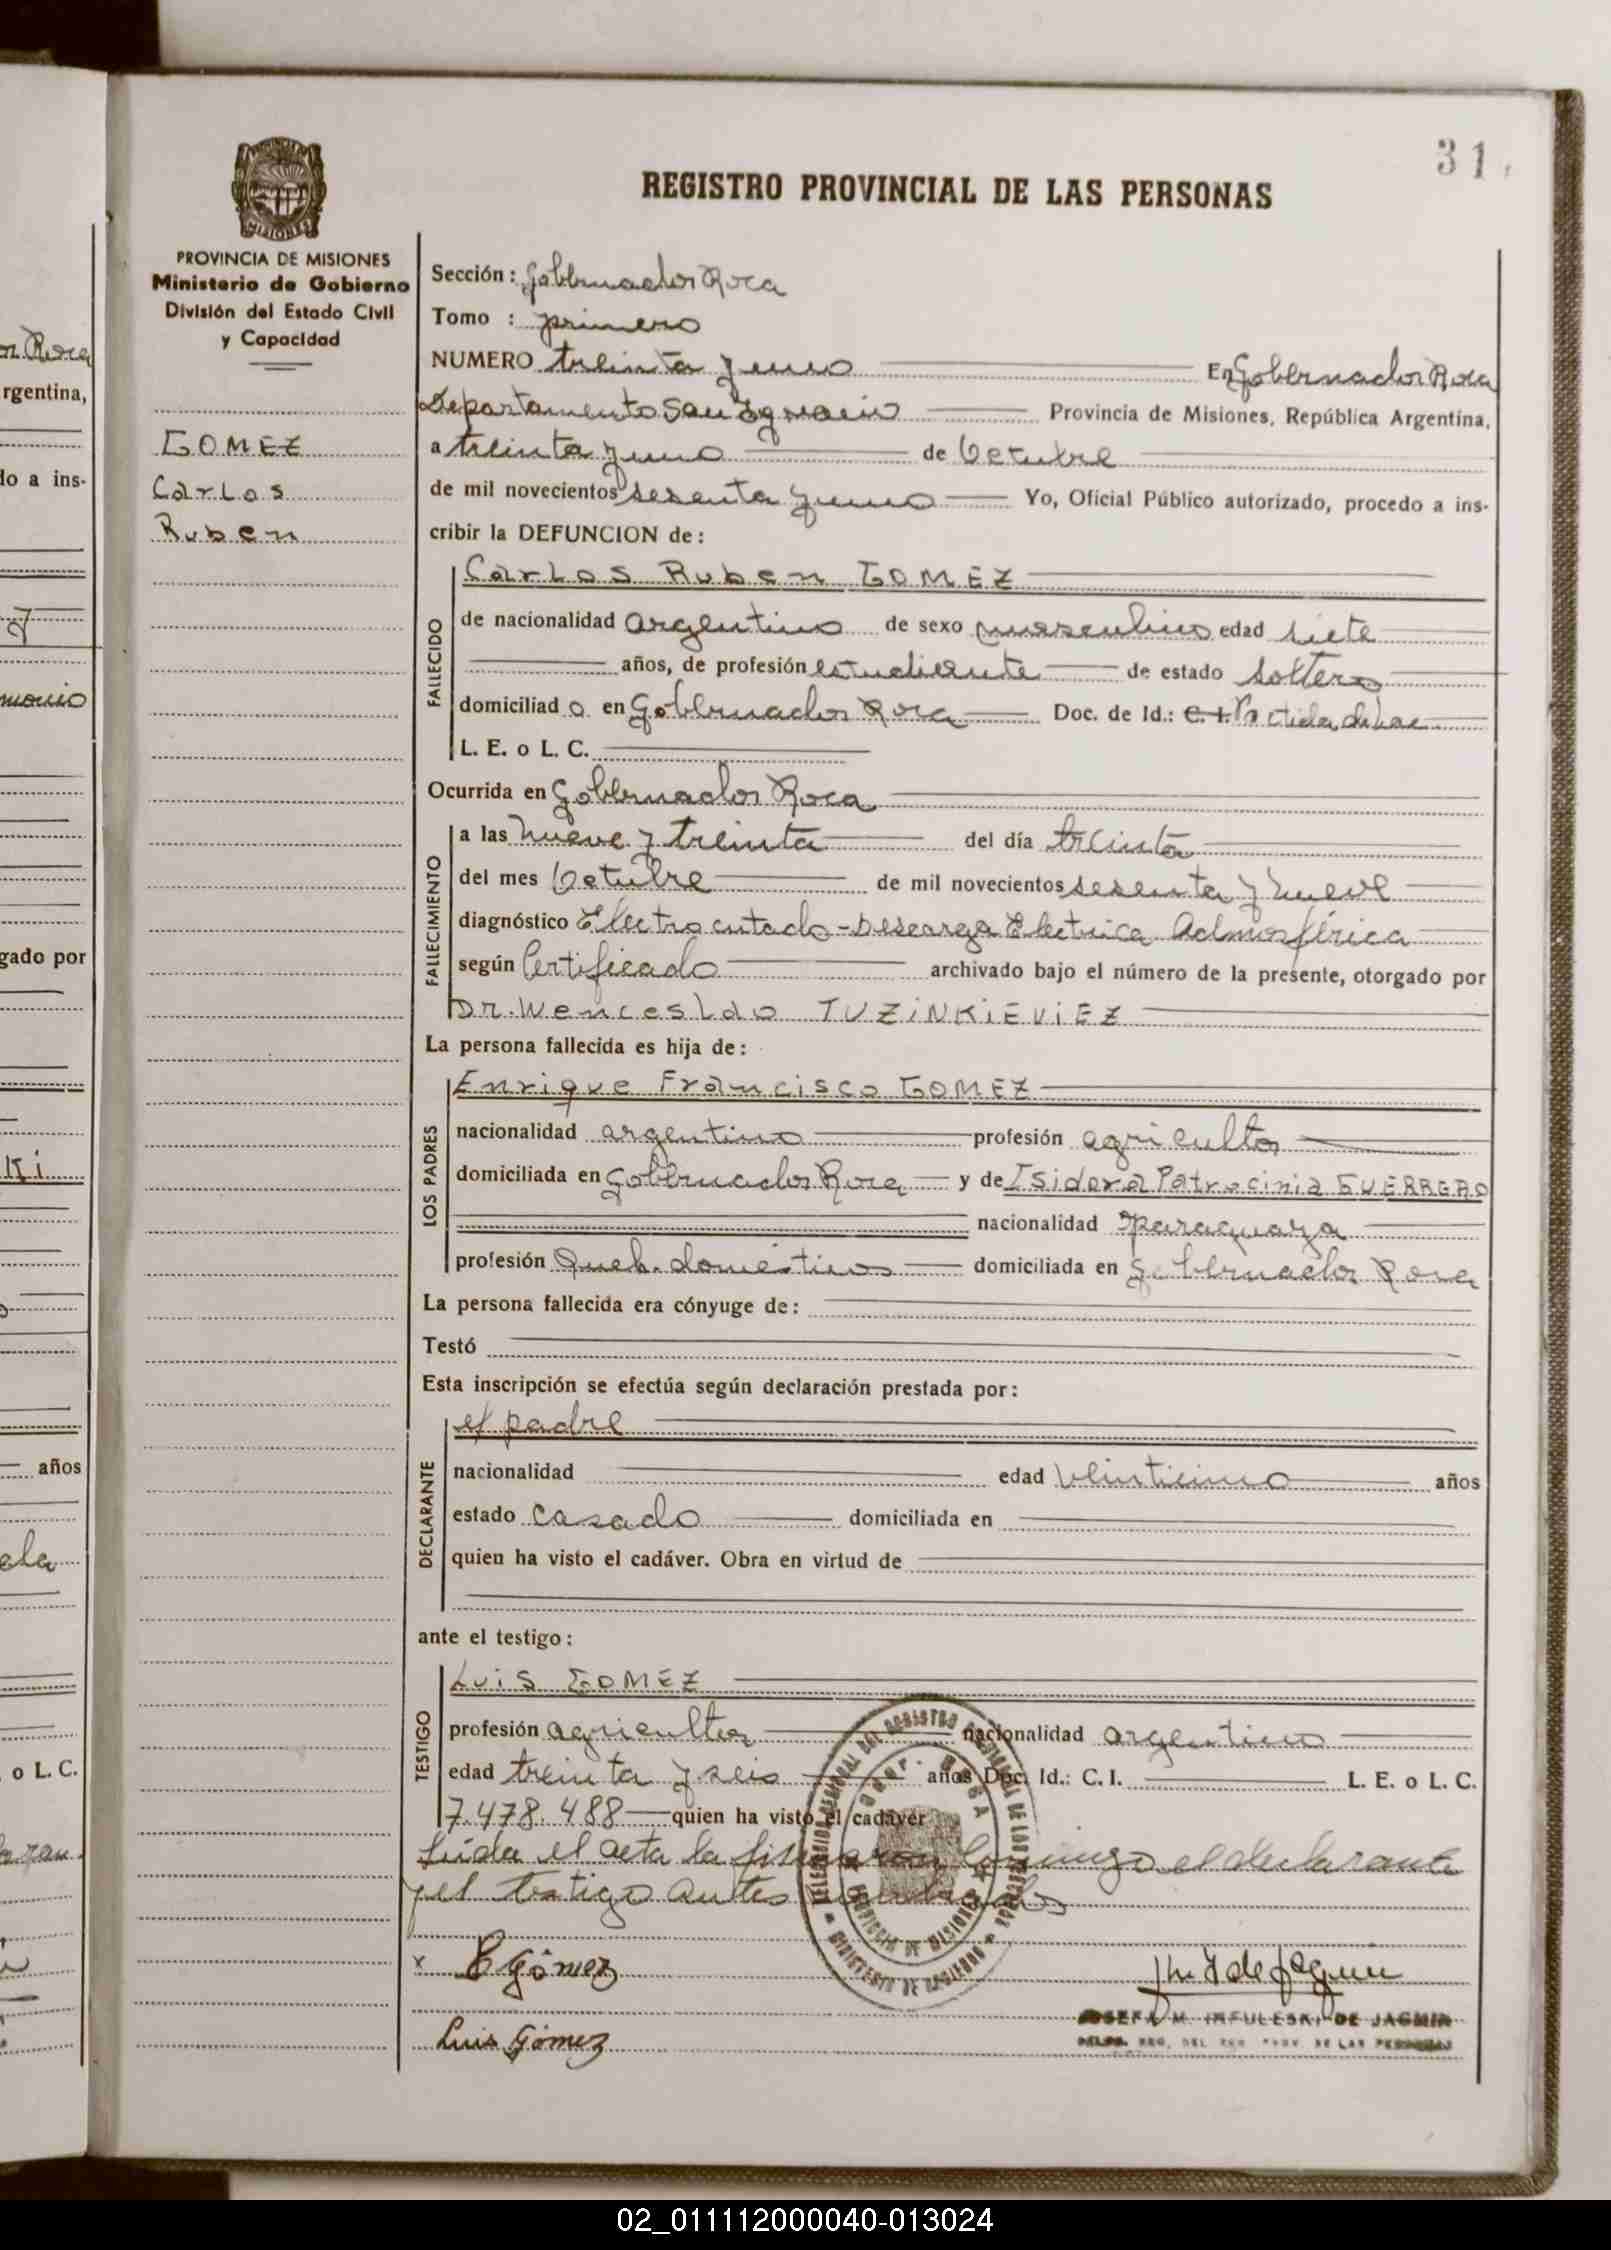 31
REGISTRO PROVINCIAL DE LAS PERSONAS
PROVINCIA DE MISIONES
Ministerio de Gobierno
División del Estado Civil
y Capacidad
GOMEZ
Carlos
Ruben
Sección: Gobernador Roca
Tomo : primero
NUMERO treinta y uno En Gobernador Roca
Departamento San Ignacio Provincia de Misiones, República Argentina,
a treinta y uno de Octubre
de mil novecientos sesenta y nueve Yo, Oficial Público autorizado, procedo a ins-
cribir la DEFUNCION de:
Carlos Ruben GOMEZ
FALLECIDO
de nacionalidad argentino de sexo masculino edad siete
años, de profesión estudiante de estado soltero
domiciliado en Gobernador Roca Doc. de Id.: C. I. Partida de Nac
L. E. o L. C.
Ocurrida en Gobernador Roca
FALLECIMIENTO
a las nueve y treinta del día treinta
del mes Octubre de mil novecientos sesenta y nueve
diagnóstico Electrocutado - Descarga Electrica Admosférica
según Certificado archivado bajo el número de la presente, otorgado por
Dr. Wencesldo TUZiNKiEViEZ
La persona fallecida es hija de:
LOS PADRES
Enrique Francisco GOMEZ
nacionalidad argentino profesión agricultor
domiciliada en Gobernador Roca y de Isidora Patrocinia GUERRERO
nacionalidad paraguaya
profesión Queh. domésticos domiciliada en Gobernador Roca
La persona fallecida era cónyuge de:
Testó
Esta inscripción se efectúa según declaración prestada por:
DECLARANTE
el padre
nacionalidad edad años
estado casado domiciliada en
quien ha visto el cadáver. Obra en virtud de
ante el testigo:
TESTIGO
Luis GOMEZ
profesión agricultor nacionalidad argentino
edad treinta y seis años Doc. Id.: C. I. L. E. o L. C.
7.478.488 quien ha visto el cadáver
Leida el acta la firmaron conmigo el declarante
y el testigo antes nombrados
x E Gómez
JOSEFA M. INFULESKI DE JAGMIN
Luis Gómez
n Roca
rgentina,
do a ins-
monio
gado por
Ki
años
ela
o L. C.
02_011112000040-013024